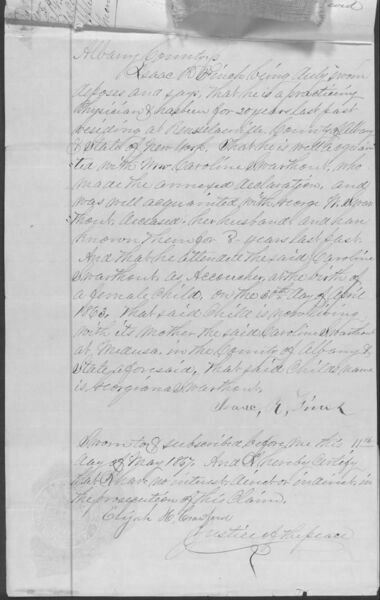 Albany County ss
Isaac R. Finch being duly sworn
deposes and says, that he is a practicing
Physician & has been for 20 years last past
residing at Rensselaerville County of Albany
& State of New York. That he is well acquain
ted with Mrs Caroline Swarthout, who
made the annexed declaration, and
was well acquainted with George W. Swar
thout deceased, her husband and has
known them for 8 years last past.
And that he attended the said Caroline
Swarthout as Accoucher at the birth of
a female Child, on the day of April
1863. That said Child is now living
with its Mother the said Caroline Swarthout
at Medusa in the County of Albany &
State aforesaid, that said Childs name
is Georgiana Swarthout.
Isaac R. Finch
Sworn to & subscribed before me this 11th
day of May 1867. And I hereby certify
that I have no interest direct or indirect in
the prosecution of this Claim.
Elijah H. Crawford
Justice of the peace